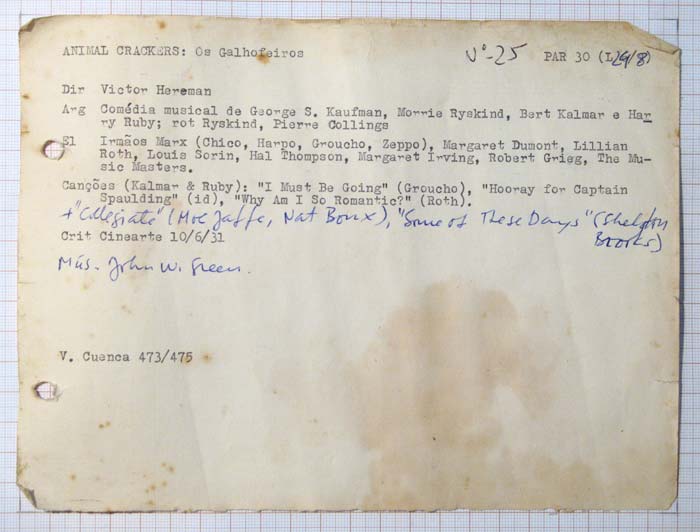 ANIMAL CRACKERS: Os Galhofeiros Vº-25 PAR 30 (L29/8)
Dir Victor Hereman
Arg Comédia musical de George S. Kaufman, Morrie Ryskind, Bert Kalmar e Har
ry Ruby; rot Ryskind, Pierre Collings
El Irmãos Marx (Chico, Harpo, Groucho, Zeppo), Margaret Dumont, Lillian
Roth, Louis Sorin, Hal Thompson, Margaret Irving, Robert Grieg, The Mu-
sic Masters.
Canções (Kalmar & Ruby): "I Must Be Going" (Groucho), "Hooray for Captain
Spaulding" (id), "Why Am I So Romantic?" (Roth).
+ "Collegiate" (Moe Jaffe, Nat Bonx), "Some of These Days" (Shelton
Brooks)
Crit Cinearte 10/6/31
Mús. John W. Green.
V. Cuenca 473/475